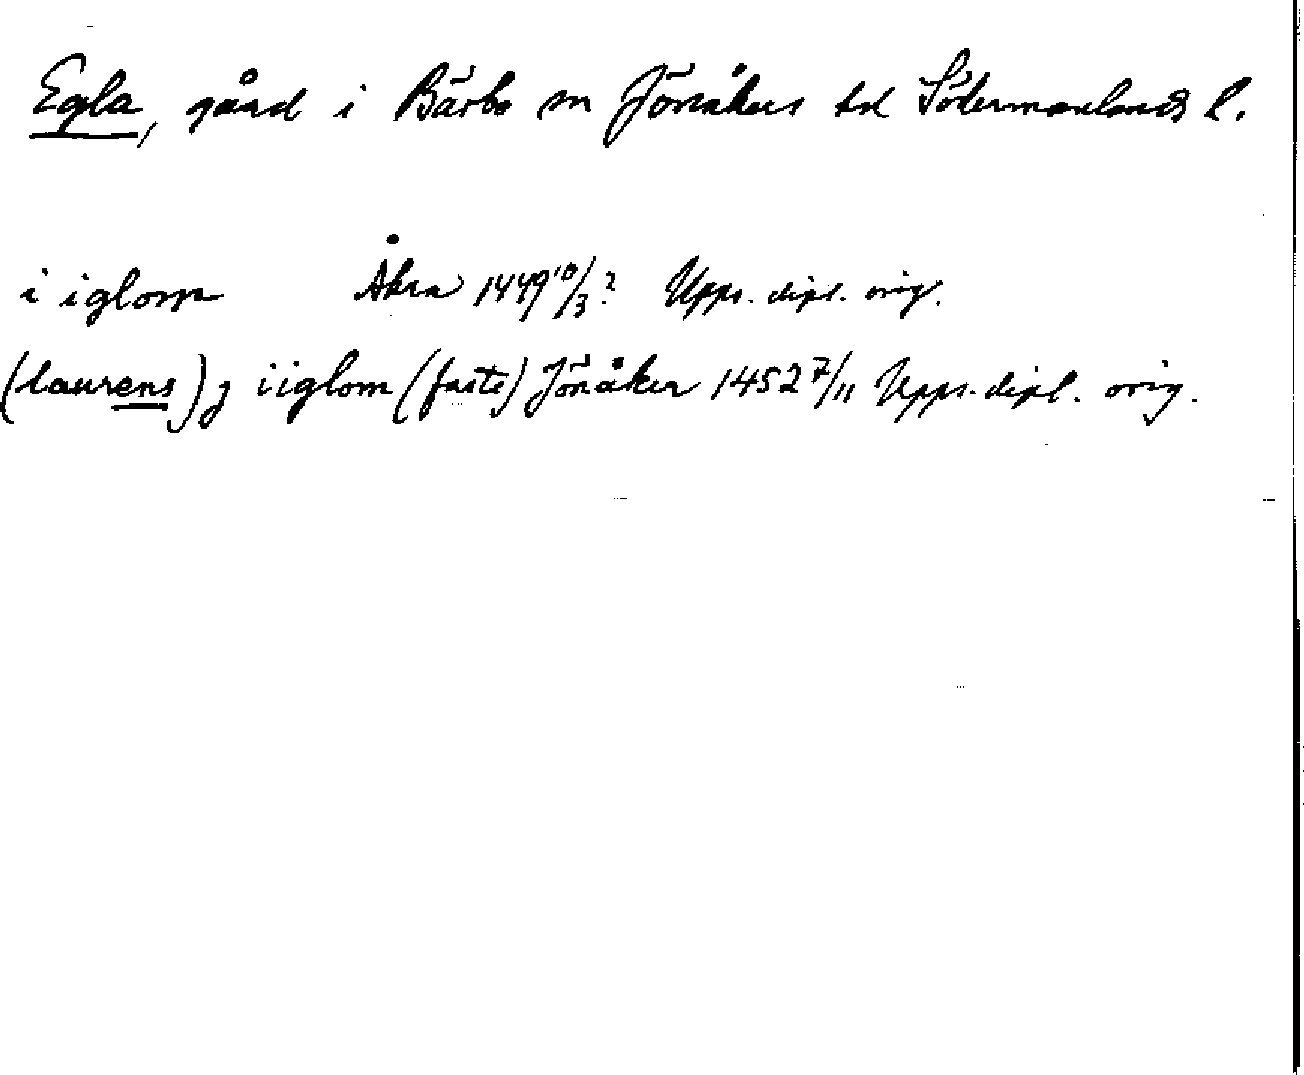 Egla, gård i Bärbo sn Jönåkers hd Södermanlands l.
i iglom Åkra 1449 10/3? Upps. dipl. orig.
(laurens) j iiglom (faste) Jönåker 1452 7/11 Upps. dipl. orig.